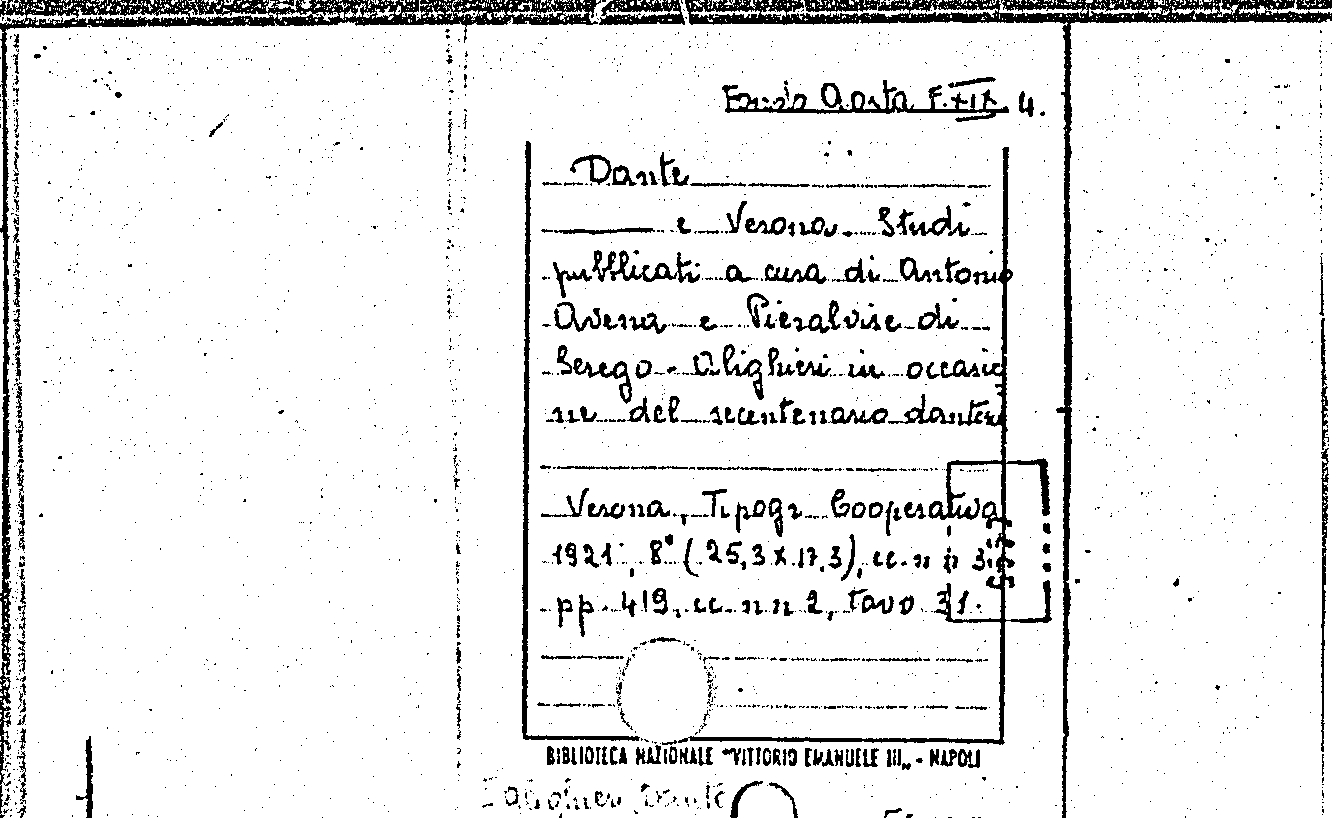 Fondo Aosta F. XIX 4.
Dante
e Verona. Studi
pubblicati a cura di Antonio
Avena e Pieralvise di
Serego-Alighieri in occasio
ne del secentenario dantesc
Verona, Tipogr Cooperativa
1921, 8° (25,3 x 17,3), cc. n n 3
pp. 419, cc. n n 2, tavo 31.
BIBLIOTECA NAZIONALE "VITTORIO EMANUELE III„ - NAPOLI